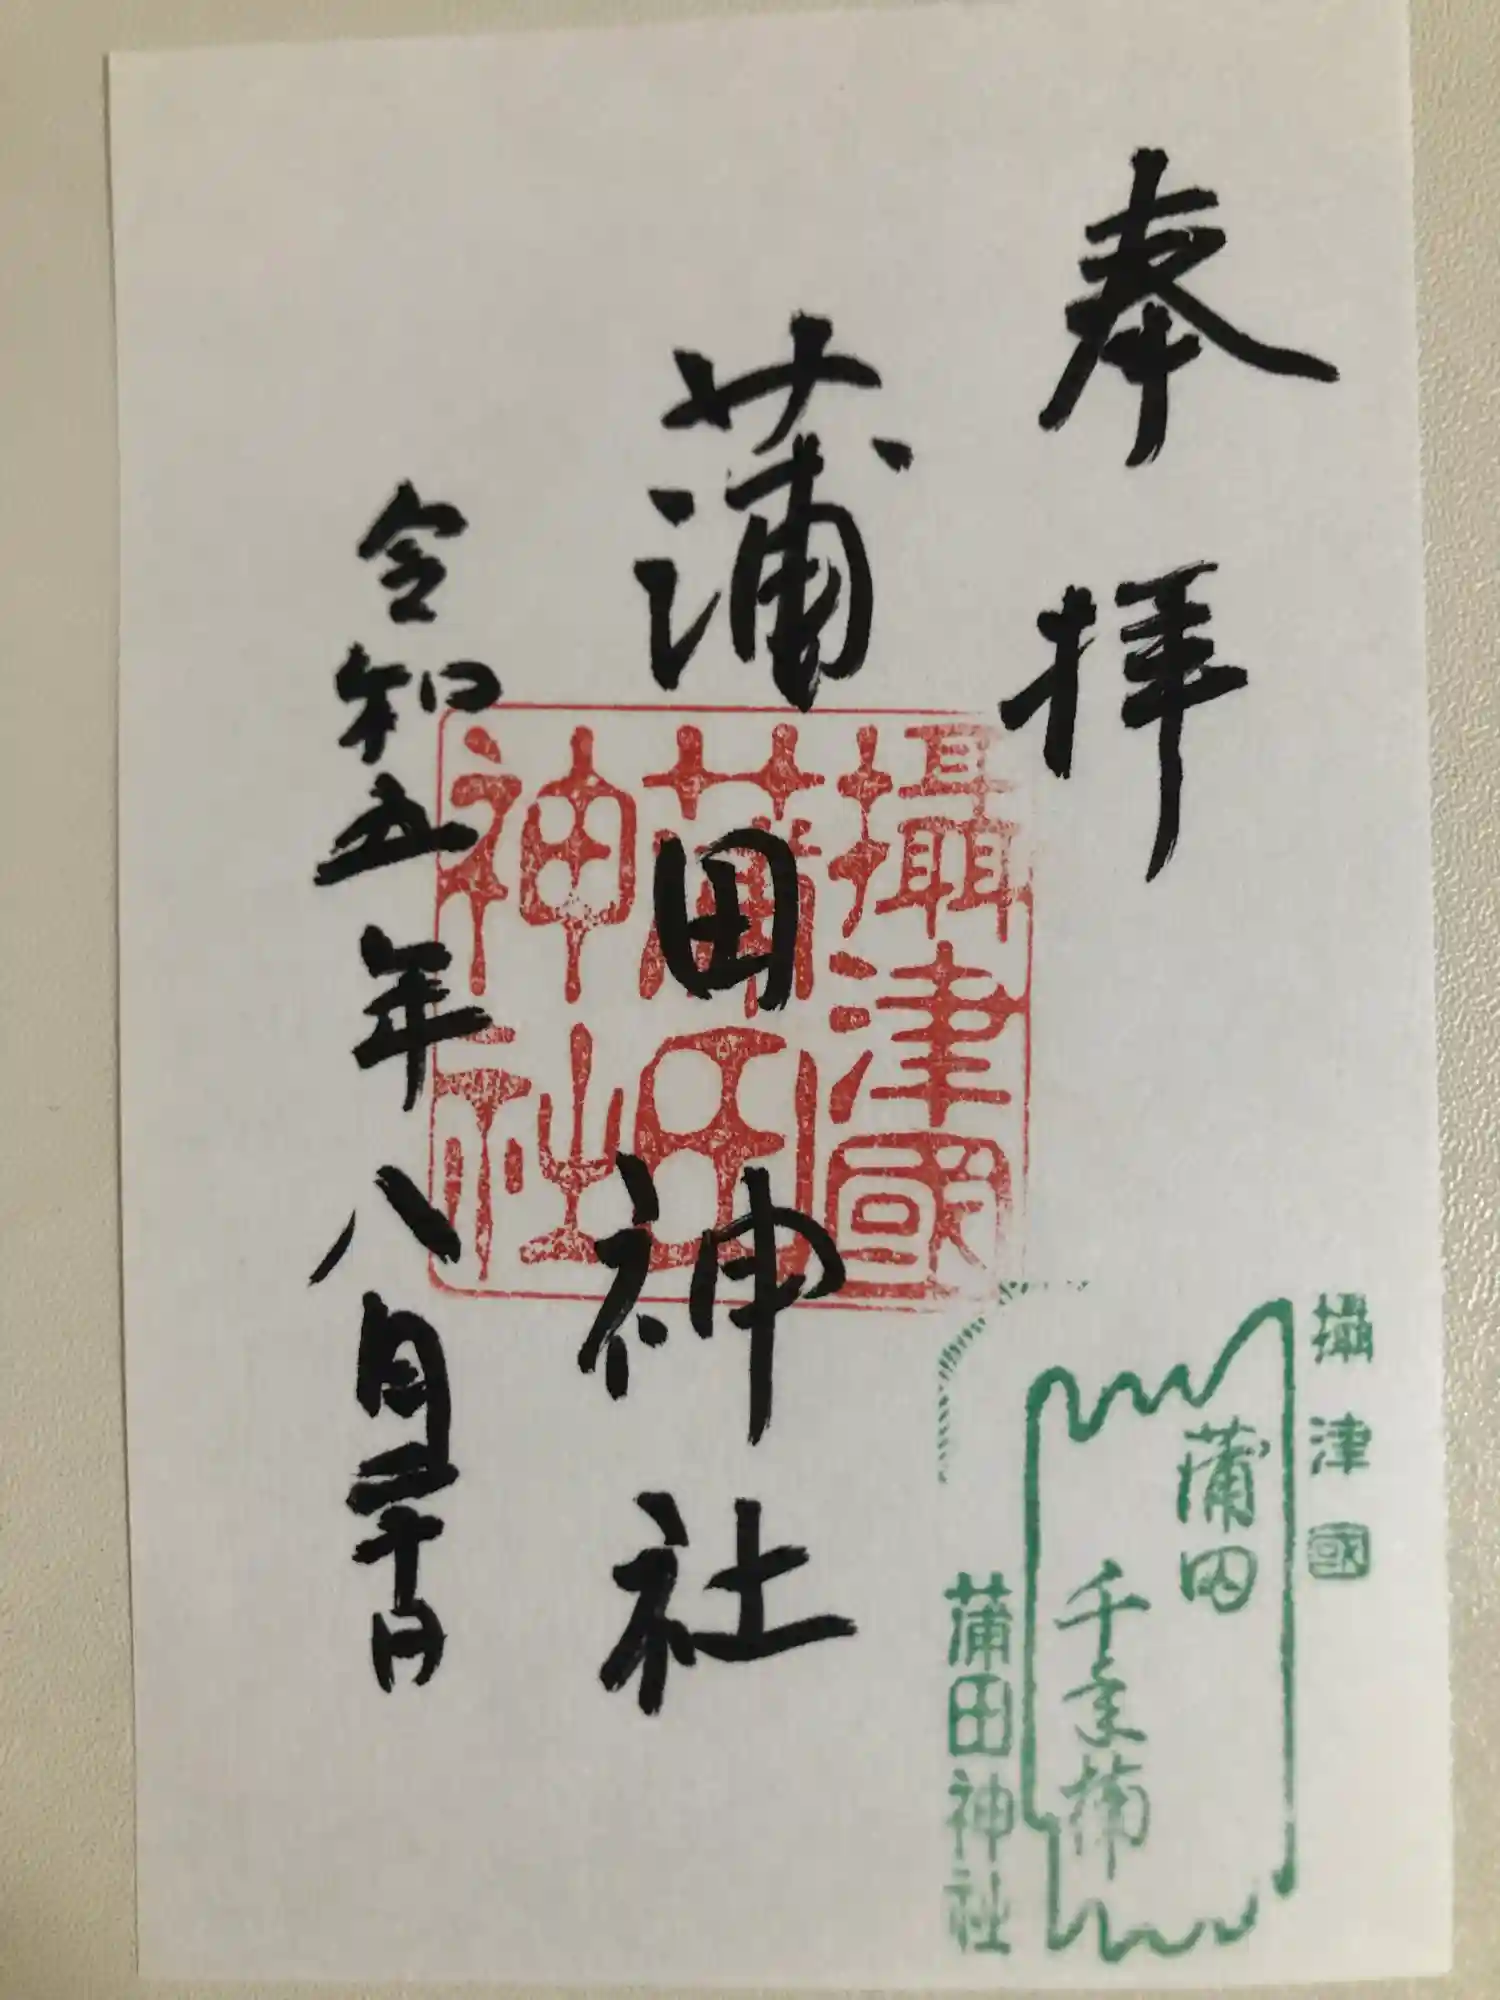 奉拝
蒲田神社
令和五年八月二十日
攝津國
蒲田
神社
攝津國
蒲田
蒲田神社